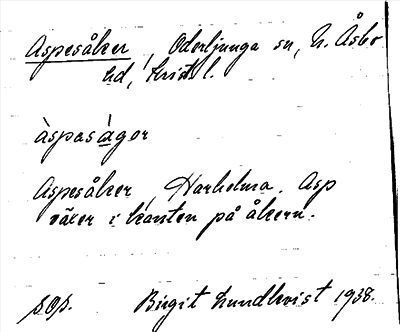 Aspesåker, Oderljunga sn, N. Åsbo
hd, Krist. l.
àspasågor
Aspesåker, Harhelma. Asp
växer i kanten på åkern.
p.o.p. Birgit Lundkvist 1938.